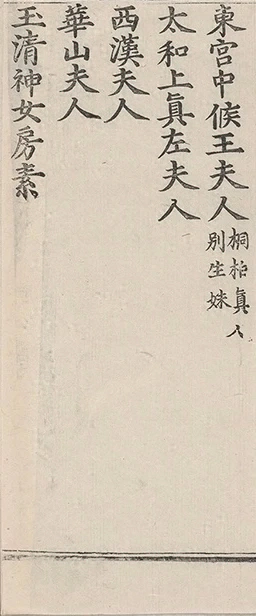 東宮中候王夫人桐柏真人別生妹
太和上真左夫人
西漢夫人
華山夫人
王清神女房素